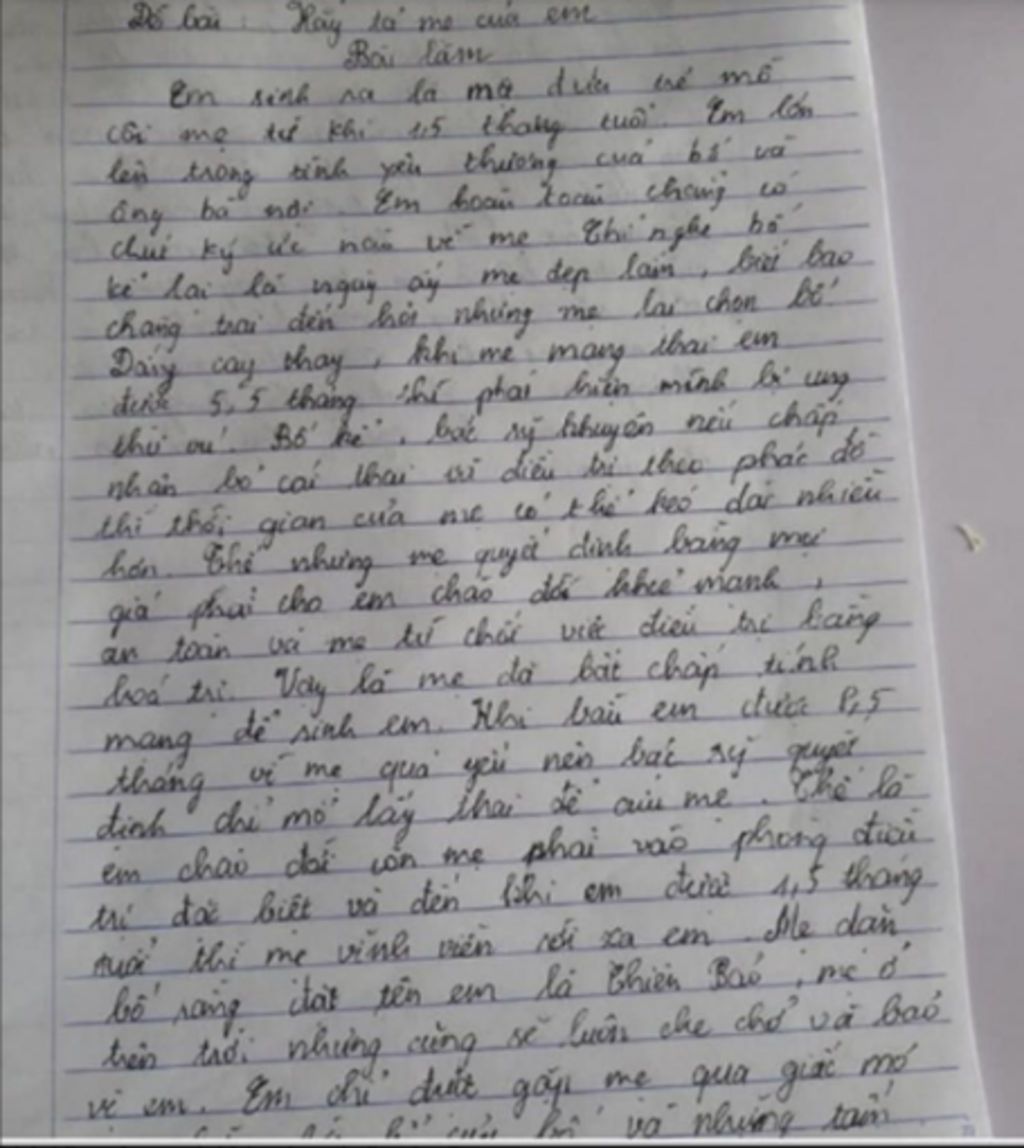 Đề bài: Hãy tả mẹ của em
Bài làm
Em sinh ra là một đứa trẻ mồ
côi mẹ từ khi 1,5 tháng tuổi. Em lớn
lên trong tình yêu thương của bố và
ông bà nội. Em hoàn toàn chẳng có
chút ký ức nào về mẹ. Chỉ nghe bố
kể lại là ngày ấy mẹ đẹp lắm, biết bao
chàng trai đến hỏi nhưng mẹ lại chọn bố
Đắng cay thay, khi mẹ mang thai em
được 5,5 tháng thì phát hiện mình bị ung
thư vú. Bố kể, bác sỹ khuyên nếu chấp
nhận bỏ cái thai và điều trị theo phác đồ
thì thời gian của mẹ có thể kéo dài nhiều
hơn. Thế nhưng mẹ quyết định bằng mọi
giá phải cho em chào đời khoẻ mạnh,
an toàn và mẹ từ chối việc điều trị bằng
hoá trị. Vậy là mẹ đã bất chấp tính
mạng để sinh em. Khi bầu em được 8,5
tháng vì mẹ quá yếu nên bác sỹ quyết
định chỉ mổ lấy thai để cứu mẹ. Thế là
em chào đời còn mẹ phải vào phòng điều
trị đặc biệt và đến khi em được 1,5 tháng
tuổi thì mẹ vĩnh viễn rời xa em. Mẹ dặn
bố rằng đặt tên em là Thiên Bảo, mẹ ở
trên trời nhưng cũng sẽ luôn che chở và bảo
vệ em. Em chỉ được gặp mẹ qua giấc mơ
và những tấm